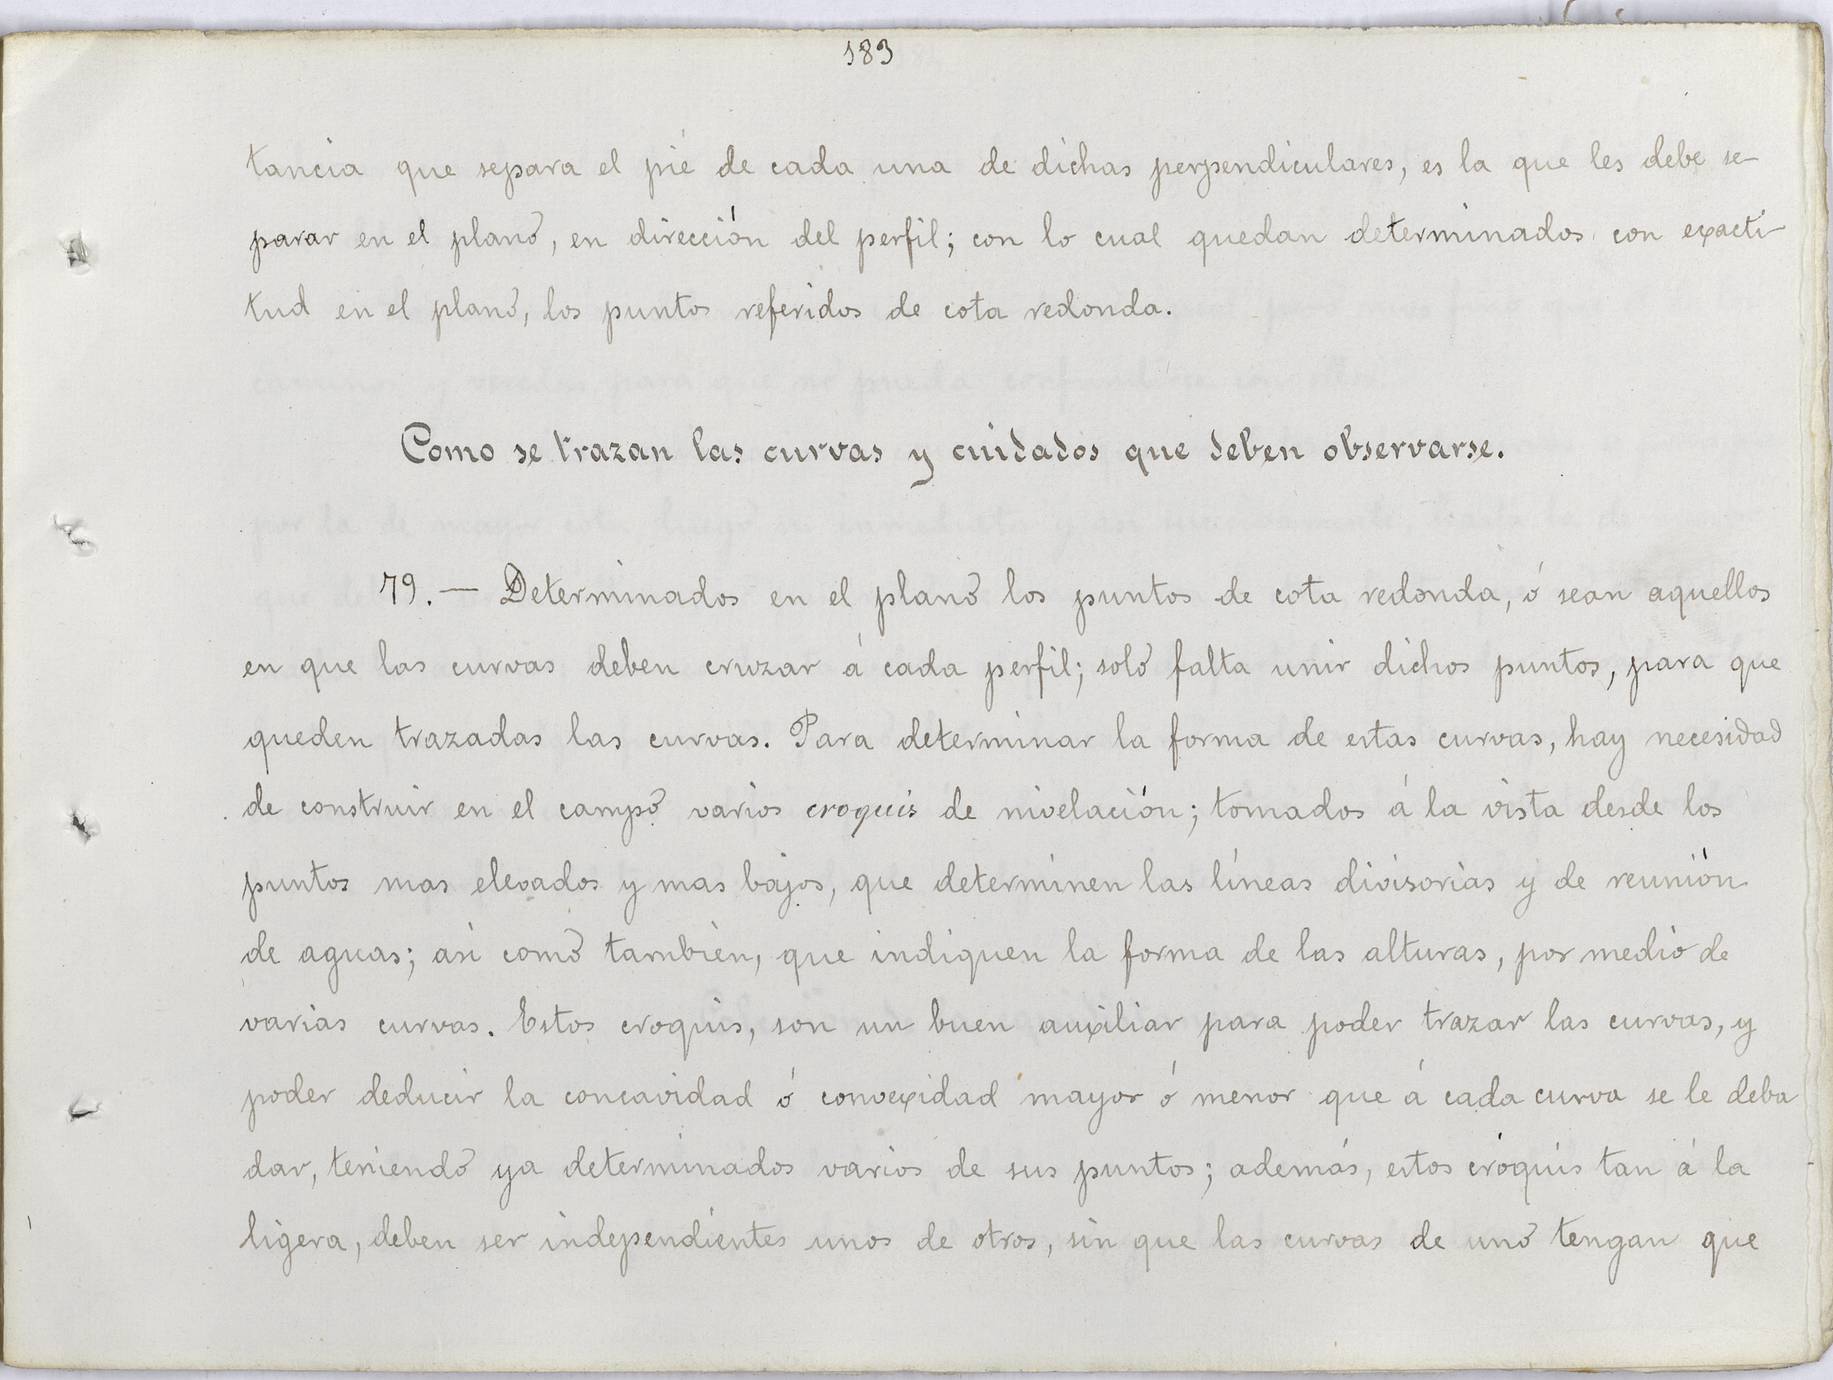 183
tancia que separa el pié de cada una de dichas perpendiculares, es la que les debe se-
parar en el plano, en dirección del perfil; con lo cual quedan determinados con exacti-
tud en el plano, los puntos referidos de cota redonda.
Como se trazan las curvas y cuidados que deben observarse.
79.— Determinados en el plano los puntos de cota redonda, ó sean aquellos
en que las curvas deben cruzar á cada perfil; solo falta unir dichos puntos, para que
queden trazadas las curvas. Para determinar la forma de estas curvas, hay necesidad
de construir en el campo varios croquis de nivelación; tomados á la vista desde los
puntos mas elevados y mas bajos, que determinen las líneas divisorias y de reunión
de aguas; asi como también, que indiquen la forma de las alturas, por medio de
varias curvas. Estos croquis, son un buen auxiliar para poder trazar las curvas, y
poder deducir la concavidad ó convexidad mayor ó menor que á cada curva se le deba
dar, teniendo ya determinados varios de sus puntos; además, estos cróquis tan á la
ligera, deben ser independientes unos de otros, sin que las curvas de uno tengan que